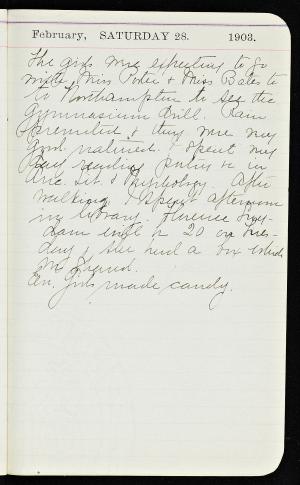 February, SATURDAY 28. 1903.
The girls were expecting to go
with Miss Porter & Miss Bates to
to Northampton to see the
Gymnasium drill. Rain
prevented & they were very
good natured. I spent my
day reading
Anc. Lit. & Mythology. After
walking I spent afternoon
in library. Florence
20
day & she had a box which
Mr
Ev. Girls made candy.